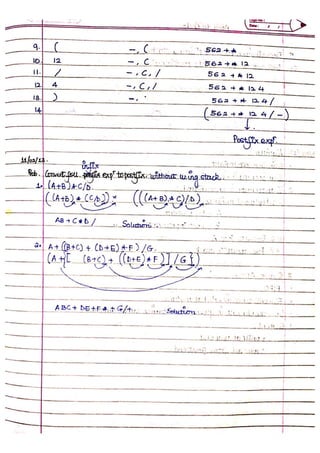 9. ( -, ( 562+*
10. 12 -, ( 562+* 12
11. / -, (, / 562+* 12
12 4 -, (, / 562+* 12 4
13. ) -, 562+* 12 4/
14 (562+* 12 4/-)
Postfix exp.
Infix
Pob. Convert you exp to postfix without using stack.
1. (A+B)*C/D.
((A+B)*(C/D)) = (((A+B)*C)/D)
AB+C*D/ Solution
2. A+((B+C)+(D+E)*F)/G.
(A+[(B+C)+((D+E)*F)]/G})
ABC+DE+F*+G/+. Solution